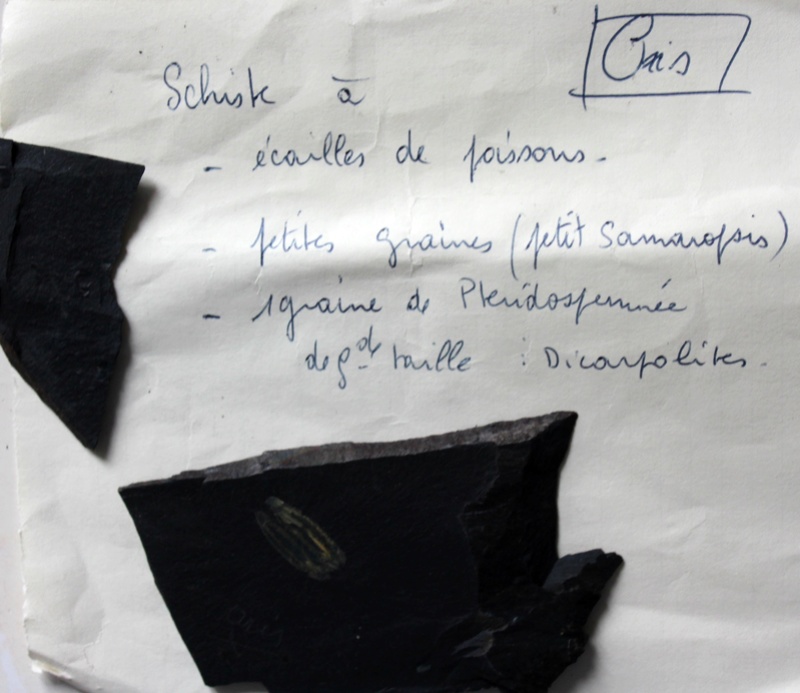 Cris
Schiste à
- écailles de poissons.
- petites graines (petit Samaropsis)
- 1 graine de Pteridospermée
de gde taille : Dicarpolites.